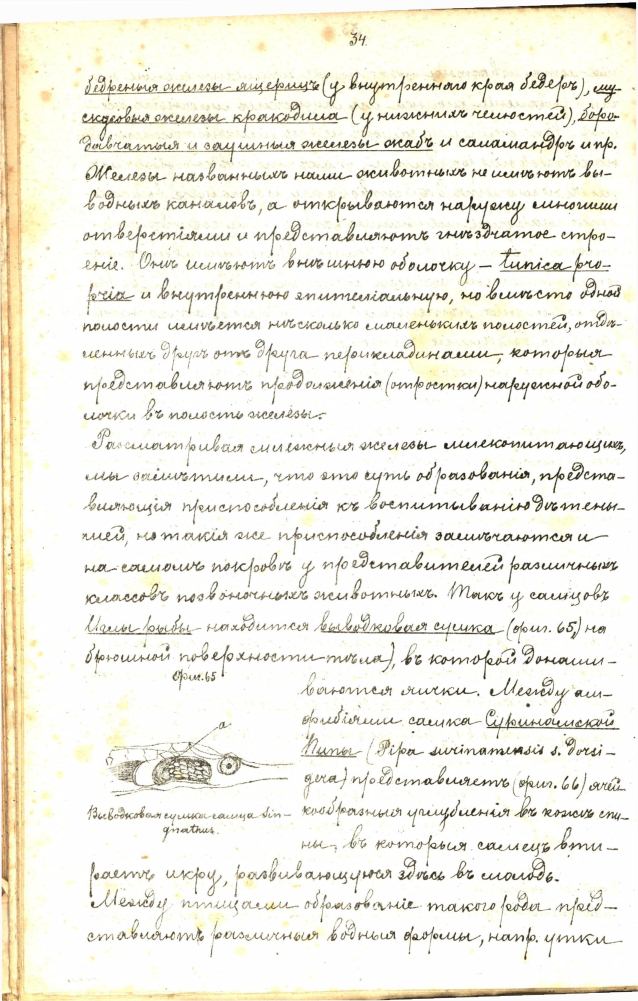 34.
бедреныя железы ящерицъ (у внутренняго края бедеръ), му-
скусовыя железы крокодила (у нижнихъ челюстей), боро-
давчатыя и заушныя железы жабъ и саламандръ и пр.
Железы названныхъ нами животныхъ не имѣютъ вы-
водныхъ каналовъ, а открываются наружу многими
отверстіями и представляютъ гнѣздчатое стро-
еніе. Онѣ имѣютъ внѣшнюю оболочку – tunica pro-
pria и внутреннюю эпителіальную, но вмѣсто одной
полости имѣется нѣсколько маленькихъ полостей, отдѣ-
ленныхъ другъ отъ друга перикладинами, которыя
представляютъ продолженія (отростки) наружной обо-
лочки въ полость железы.
Разсматривая млежныя железы млекопитающихъ,
мы замѣтили, что это суть образованія, предста-
вляющія приспособленія къ воспитыванію дѣтены-
шей, но такія же приспособленія замѣчаются и
на самомъ покровѣ у представителей различныхъ
классовъ позвоночныхъ животныхъ. Такъ у самцовъ
Иглы рыбы находится выводковая сумка (фиг. 65, на
брюшной поверхности тѣла), въ которой донаши-
фиг. 65
ваются яички. Между ам-
фибіями самка Суринамской
Пипы (Pipa surinamensis s. dorsi-
gera) представляетъ (фиг. 66) ячей-
кообразныя углубленія въ кожѣ спи-
ны, въ которыя самецъ вти-
a
Выводковая сумка самца Sin-
gnathus.
раетъ икру, развивающуюся здѣсь въ молодь.
Между птицами образованіе такого рода пред-
ставляютъ различныя водныя формы, напр. утки